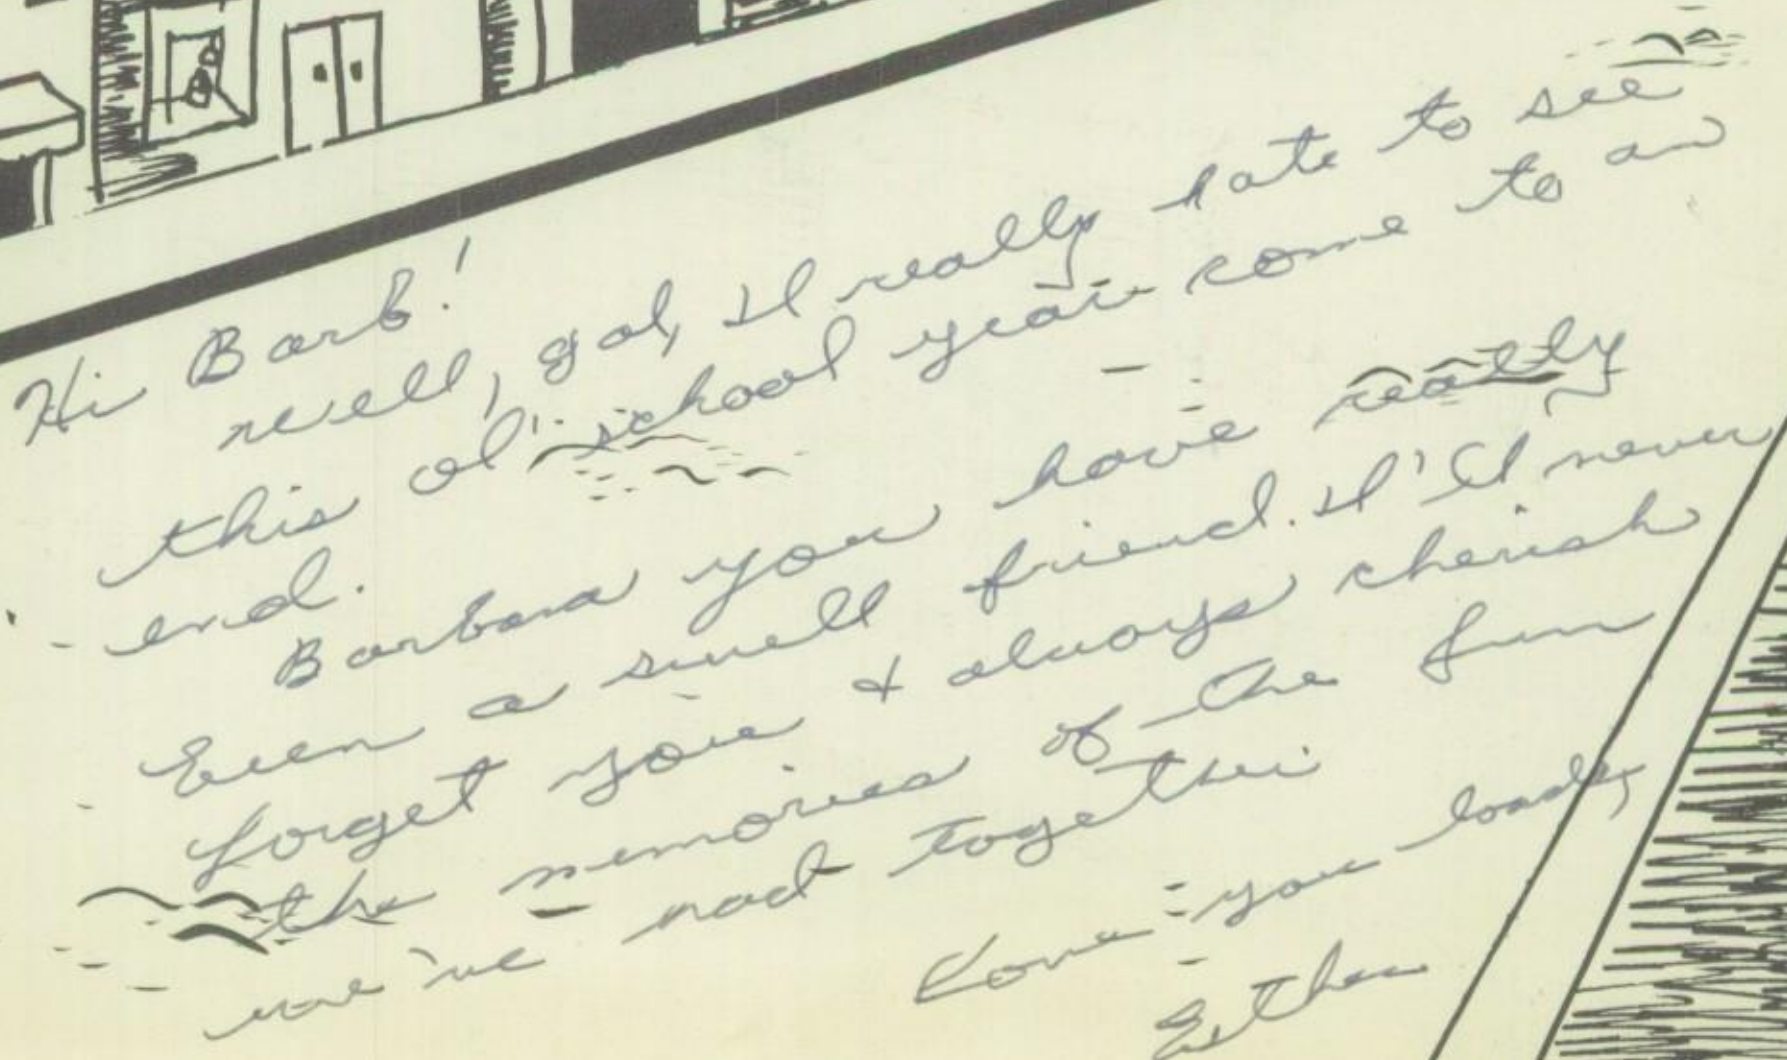 Hi Barb!
Well, gal, I really hate to see
this ol' school year come to an
end.
Barbara you have really
been a swell friend. I'll never
forget you & always cherish
the memories of the fun
we've had together
Love you loads,
Esther